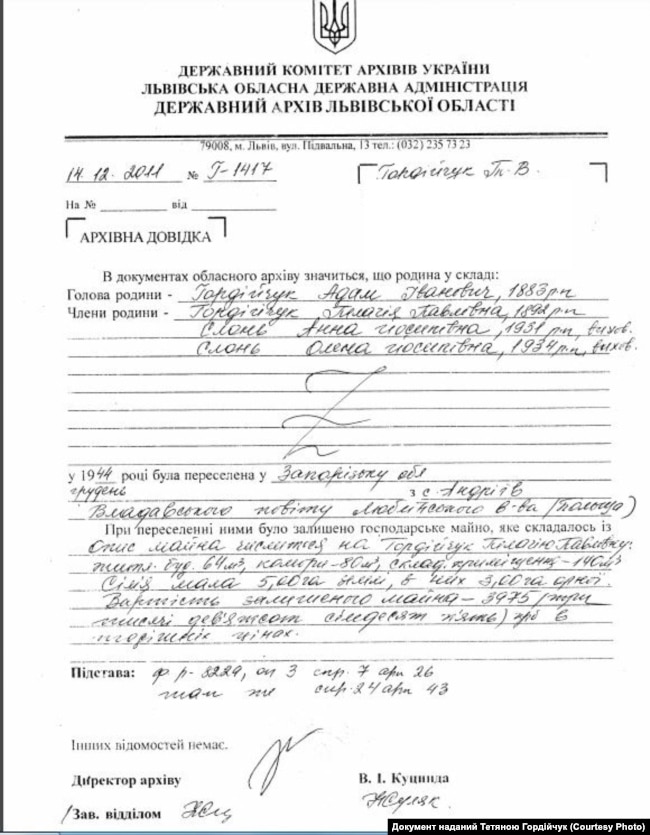 ДЕРЖАВНИЙ КОМІТЕТ АРХІВІВ УКРАЇНИ
ЛЬВІВСЬКА ОБЛАСНА ДЕРЖАВНА АДМІНІСТРАЦІЯ
ДЕРЖАВНИЙ АРХІВ ЛЬВІВСЬКОЇ ОБЛАСТІ
79008, м. Львів, вул. Підвальна, 13 тел.: (032) 235 73 23
14.12.2011 № Г-1417 Гордійчук Т.В.
На № від
АРХІВНА ДОВІДКА
В документах обласного архіву значиться, що родина у складі:
Голова родини - Гордійчук Адам Іванович, 1883 р.н
Члени родини - Гордійчук Пілагія Павлівна, 1892 р.н
Слонь Анна Йосипівна, 1931 р.н, вихов.
Слонь Олена Йосипівна, 1934 р.н, вихов.
у 1944 році була переселена у Запорізьку обл
грудень з с. Андріїв
Владавського повіту Люблінського в-ва (Польща)
При переселенні ними було залишено господарське майно, яке складалось із
Опис майна числиться на Гордійчук Пілагію Павлівну:
житл. буд. 64м³, комори-80м³, склад. приміщення-140м³
Сімія мала 5,00га землі, в них 3,00га орної.
Вартість залишеного майна - 3975 (три
тисячі дев'ятсот сімдесят п'ять) крб в
тогочасних цінах.
Підстава: ф р-3229, оп 3 спр. 7 арк 26
там же спр. 24 арк 43
Інших відомостей немає.
Директор архіву В. І. Куцинда
/Зав. відділом Жуляк.
Документ наданий Тетяною Гордійчук (Courtesy Photo)